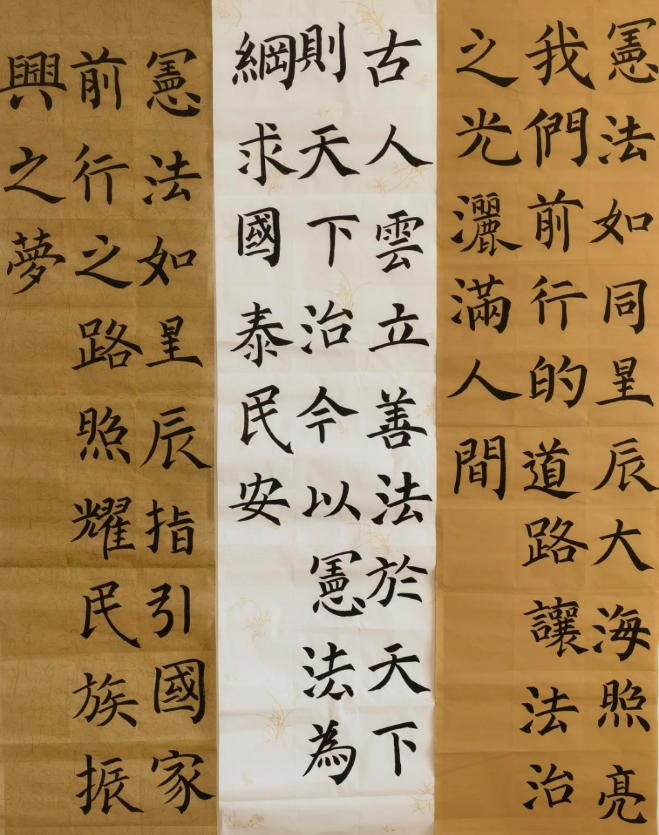 憲法如同星辰大海照亮
我們前行的道路讓法治
之光灑滿人間
古人雲立善法於天下
則天下治今以憲法為
綱求國泰民安
憲法如星辰指引國家
前行之路照耀民族振
興之夢